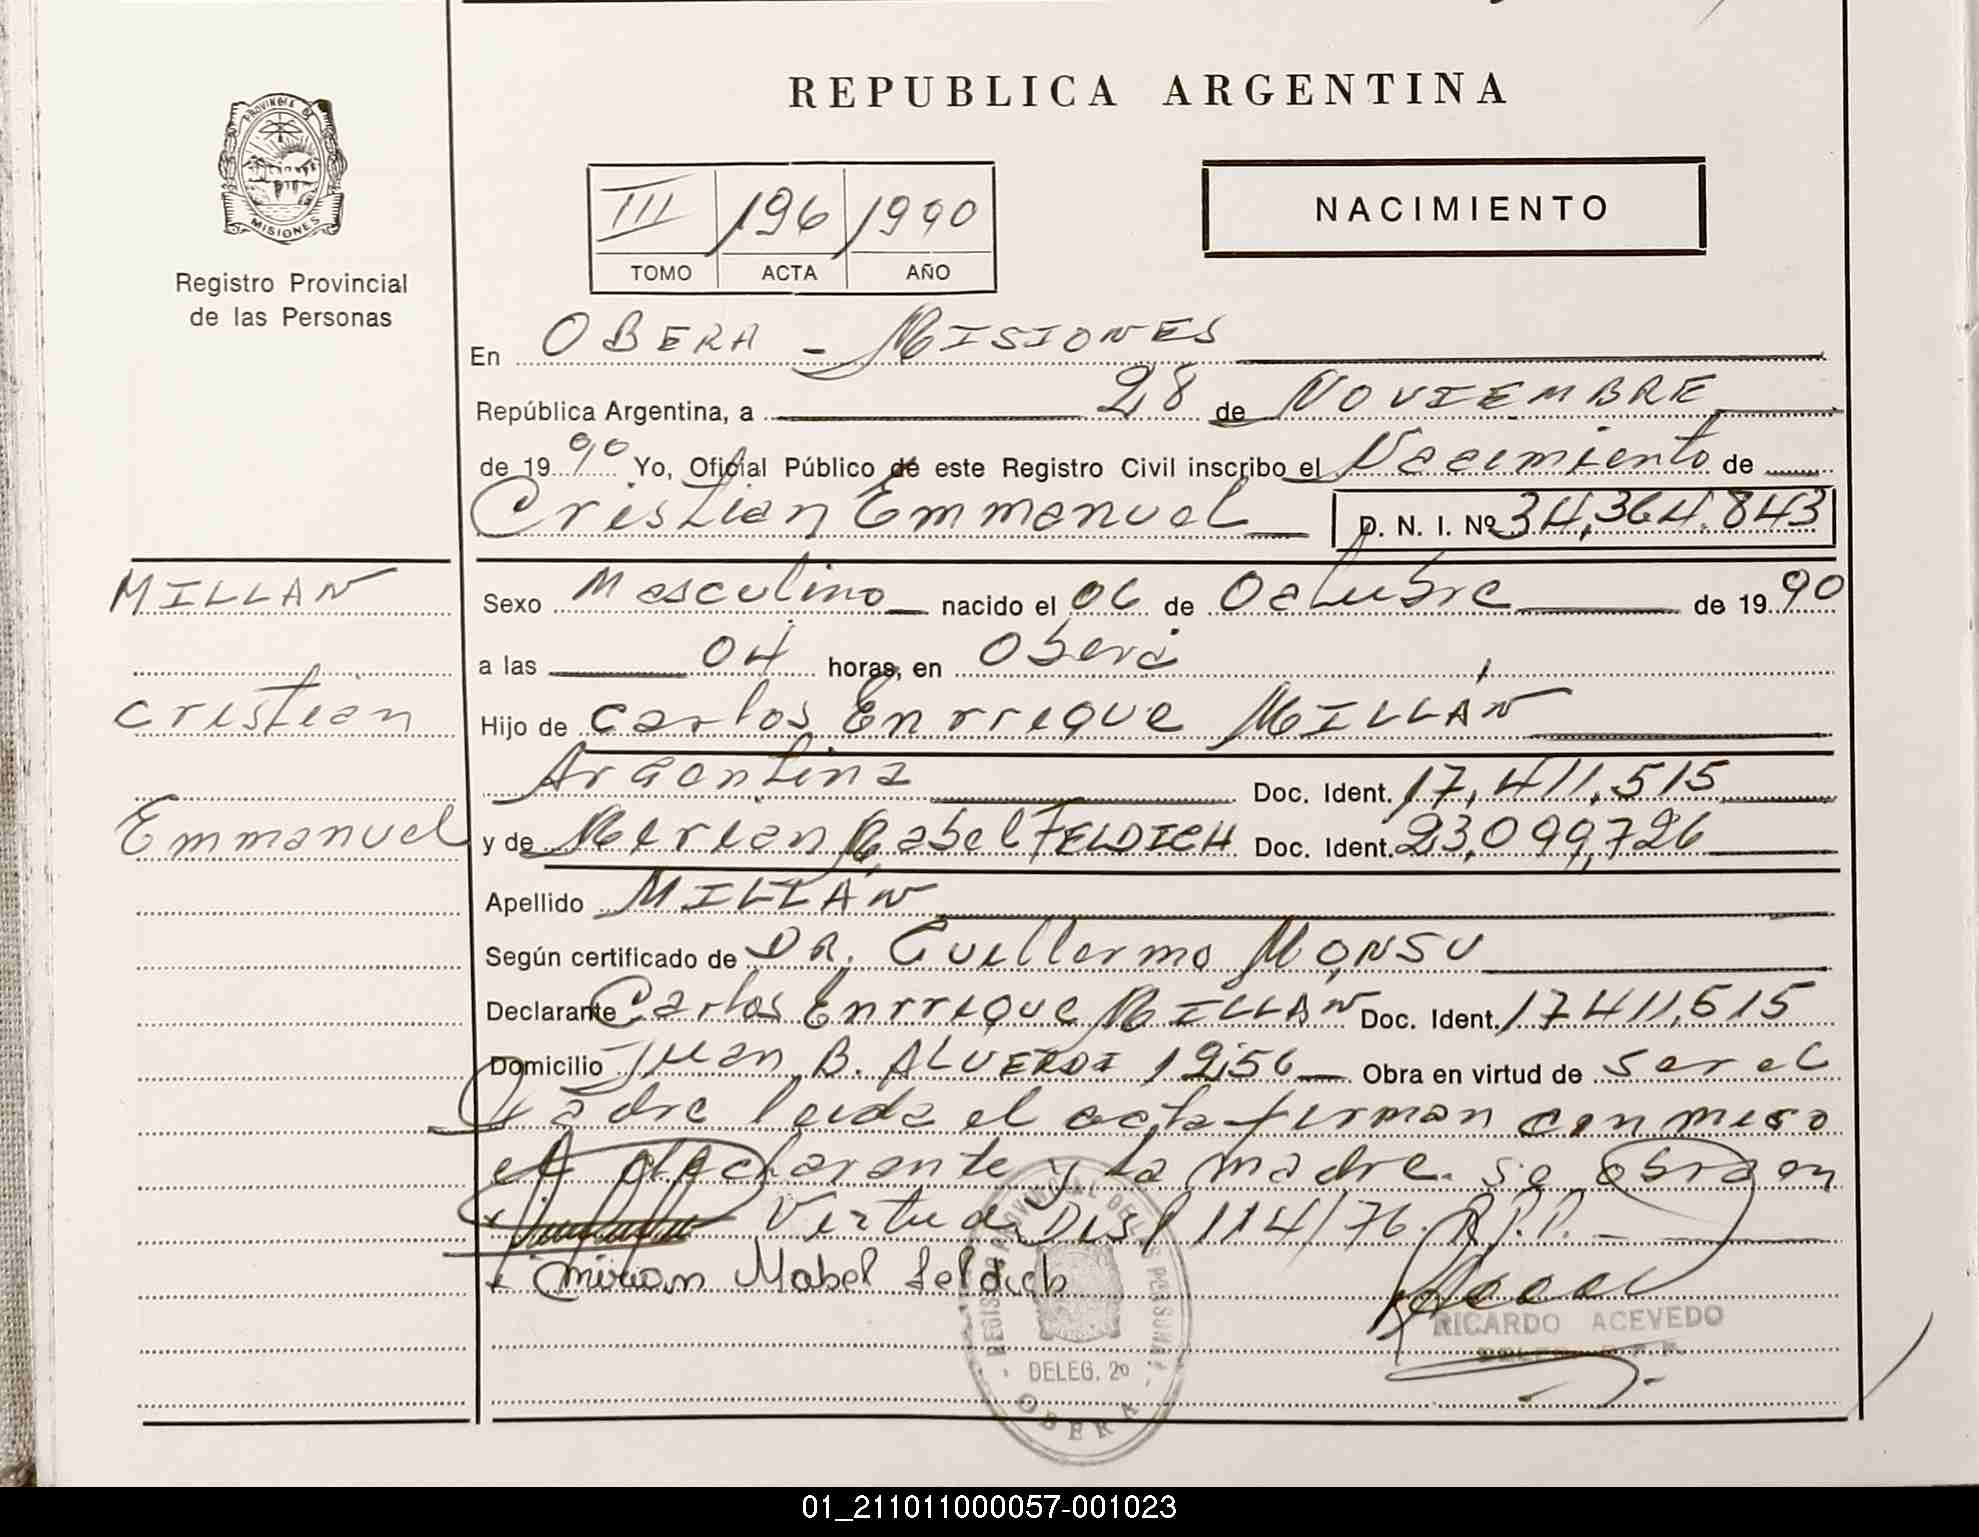 REPUBLICA ARGENTINA
PROVINCIA DE
MISIONES
Registro Provincial
de las Personas
III 196 1990
TOMO ACTA AÑO
NACIMIENTO
En OBERA - MISIONES
República Argentina, a 28 de NOVIEMBRE
de 1990 Yo, Oficial Público de este Registro Civil inscribo el Nacimiento de
Cristian Emmanuel D. N. I. Nº 34,364.843
MILLAN
Cristian
Emmanuel
Sexo Masculino nacido el 06 de Octubre de 1990
a las 04 horas, en Oberá
Hijo de Carlos Enrrique MILLÁN
Argentina Doc. Ident. 17,411,515
y de Mirian Mabel FELDICH Doc. Ident. 23,099,726
Apellido MILLÁN
Según certificado de DR. Guillermo MONSU
Declarante Carlos Enrrique MILLAN Doc. Ident. 17411,515
Domicilio Juan B. ALVERDI 1256 Obra en virtud de ser el
Padre leida el acta firman conmigo
el declarante y la madre. se obra en
Virtud Disp 114/76. R.P.P.
Mirian Mabel Feldich
REGISTRO PROVINCIAL DE LAS PERSONAS
RICARDO ACEVEDO
DELEG. 20
OBERA
01_211011000057-001023